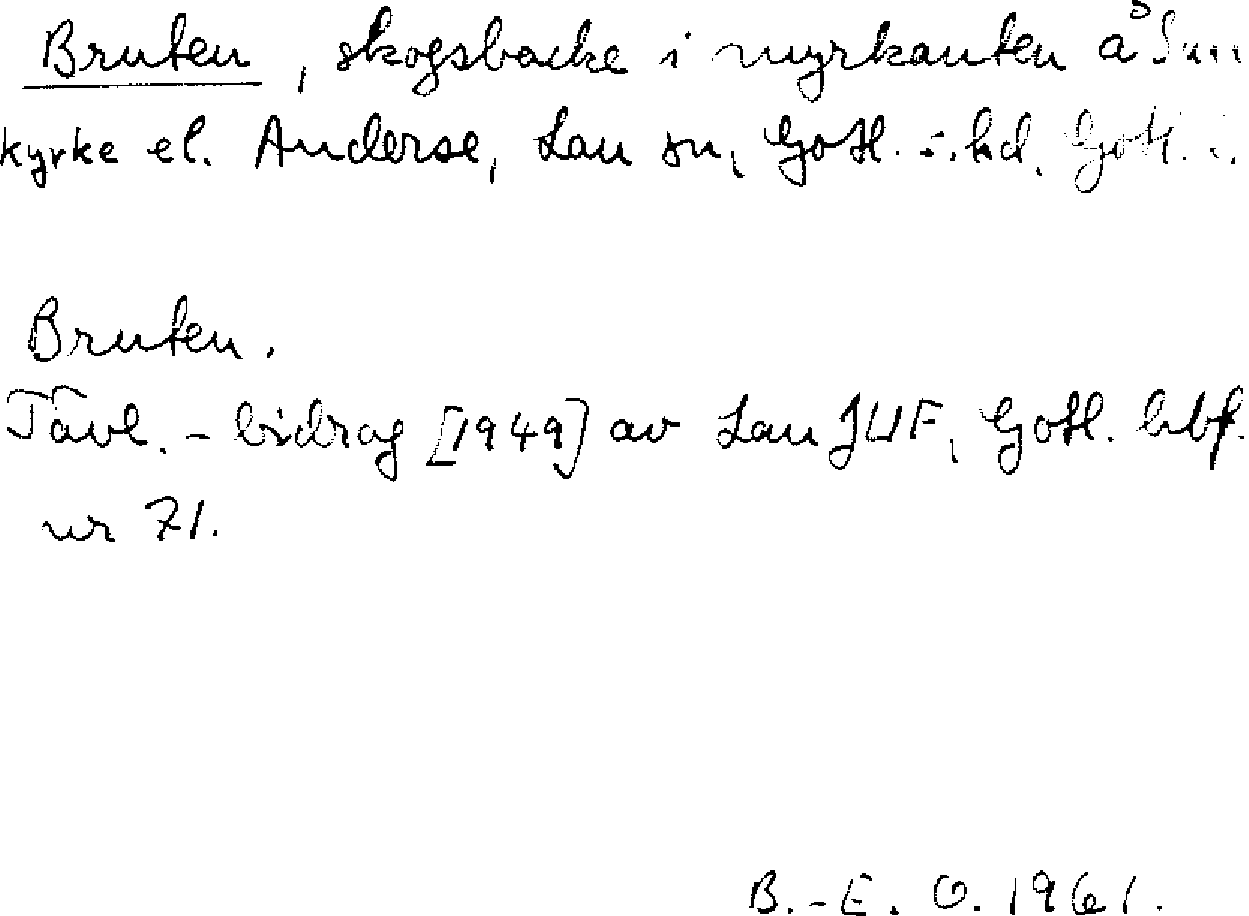 Bruten, skogsbacke i myrkanten å Sun
kyrke el. Anderse, Lau sn, Gotl. s. hd. Gotl. l.
Bruten.
Tävl.-bidrag [1949] av Lau JUF, Gotl. hbf.
nr 71.
B.-E. O. 1961.